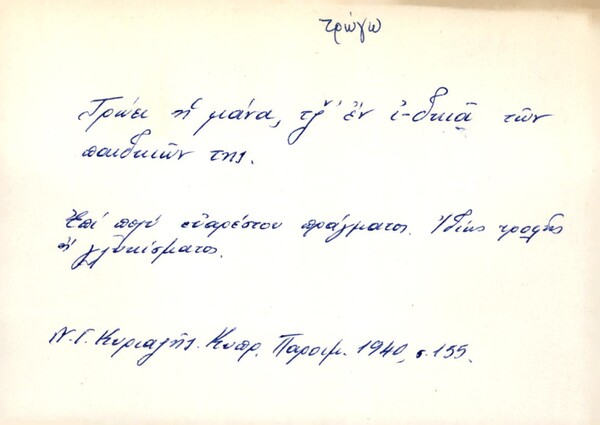 τρώγω
Τρώει ἡ μάνα, τζ̌' ἐν ἐ-δικιᾶ τῶν
παιδκιῶν της.
Ἐπί πολύ εὐαρέστου πράγματος. Ἰδίως τροφῆς
ἤ γλυκίσματος.
Ν. Γ. Κυριαζῆς. Κυπρ. Παροιμ. 1940, σ. 155.